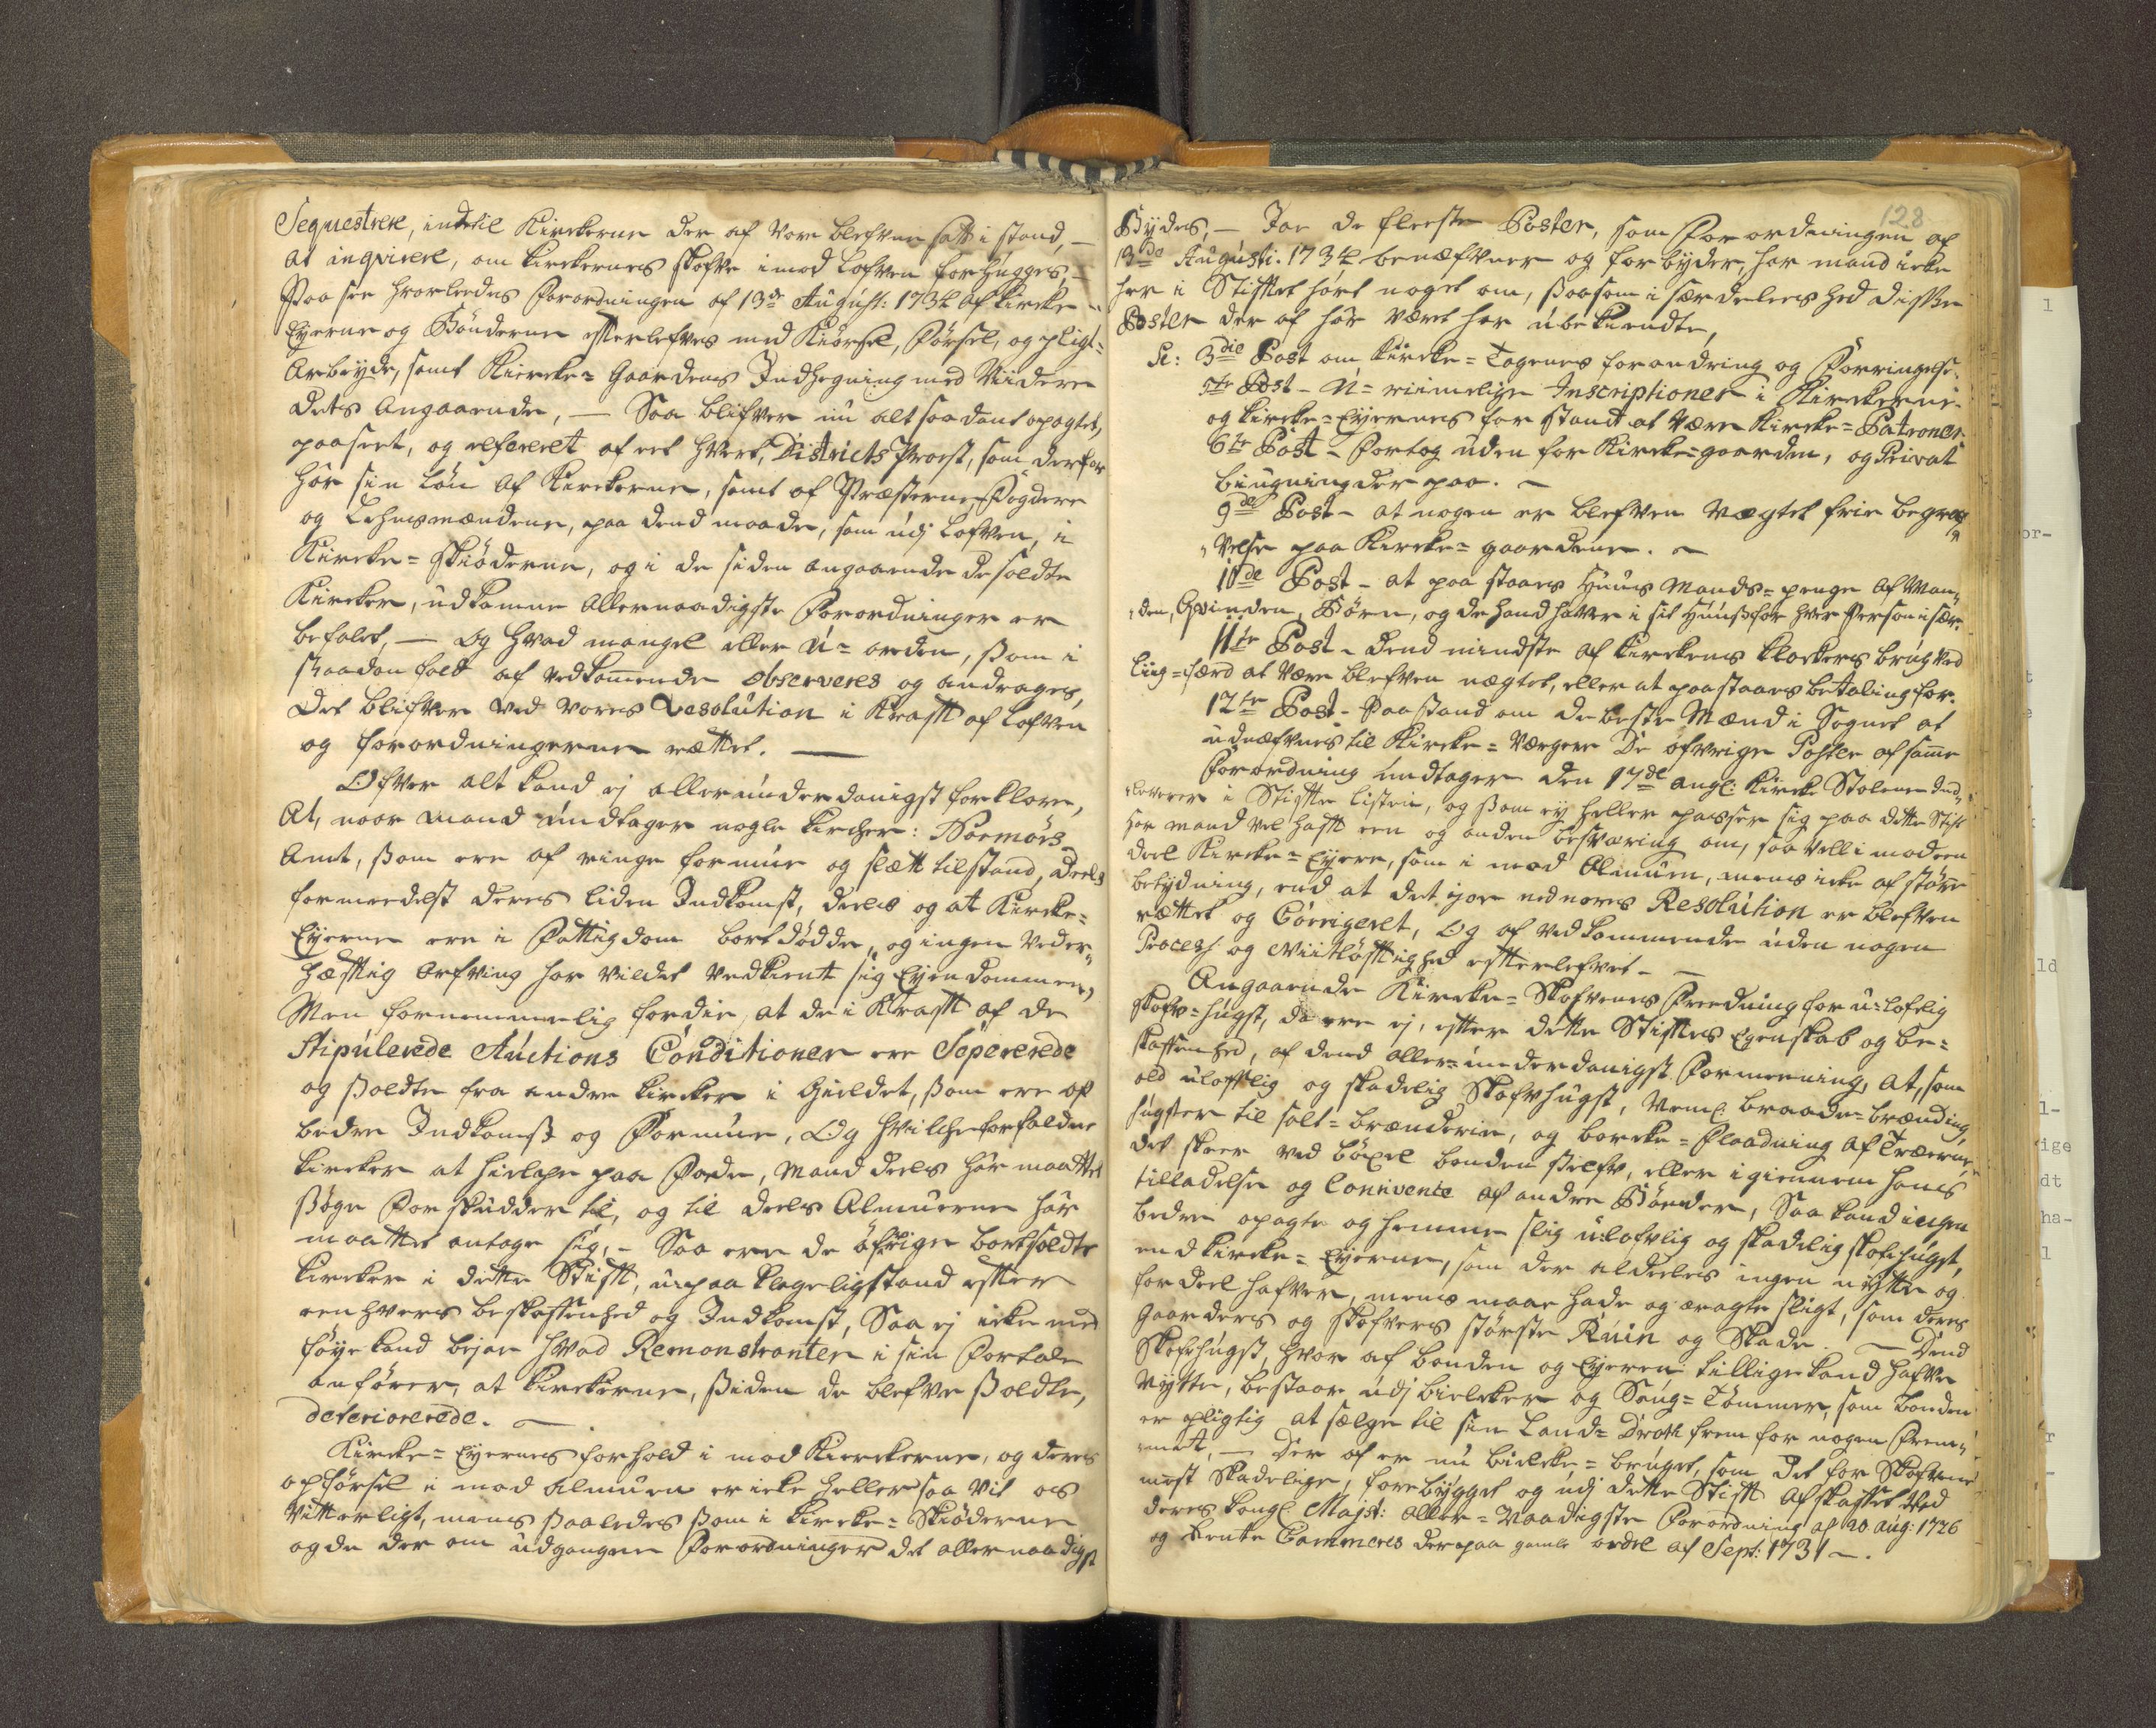 Sequestrere, indtil Kirckerne der af vare blefvne satt i stand, —
at inqvirere, om kirckernes skofve imod Lofven forhugges, —
Paa see hvorleedes Forordningen af 13de August: 1734 af Kircke-
Eyerne og Bønderne efterlefves med Kiørsel, Førsel, og pligt=
Arbeyde, samt Kircke= Gaardens Indhegning med Viidere
dets angaaende, — Saa blifver nu alt saadant opagtet,
paaseet, og refereret af eet hvert, Districts Provst, som derfor
har sin Løn af Kirckerne, samt af Præsterne, Fogderne
og Lehnsmændene, paa dend maade, som udj Lofven, i
Kircke= skiøderne, og i de siden angaaende de soldte
Kircker, udkomne Allernaadigste Forordninger er
befalet, — Og hvad mangel eller U= orden, som i
saadan fald af vedkommende observeres og andrages,
det blifver ved vores Resolution i Kraft af Lofven
og forordningerne rettet. —
Ofver alt kand ej allerunderdanigst forklare,
At, naar mand undtager nogle kircher: Normørs
Amt, som ere af ringe formue og slætt tilstand, deels
formeedelst deres liden Indkomst, deels og at Kircke=
Eyerne ere i Fattigdom bortdødde, og ingen veder=
hæftig Arfving har vildet vedkient sig Eyendommen,
Men fornemmelig fordie, at de i Kraft af de
Stipulerede Auctions Conditioner ere Sepererede
og soldte fra andre kircker i Gieldet, som ere af
bedre Indkomst og Formue, Og hvilche forfaldne
kircker at hielpe paa Fode, mand deels har maattet
søge Forskudder til, og til deels Almuerne har
maattet antage sig, — Saa ere de øfrige bortsoldte
kircker i dette Stift, u=paa klageligstand efter
een hvers beskaffenhed og Indkomst, Saa ej icke med
føye kand bejae hvad Remonstranten i sin Fortale
anfører, at kirckerne, siden de blefve soldte,
deteriorerede. —
Kircke= Eyernes forhold i mod Kirckerne, og deres
opførsel i mod Almuen er icke heller saa vit os
vitterligt, mens saaledes som i kircke= Skiøderne
og de der om udgangne Forordninger det allernaadigst
128
Bydes, — Jae de fleeste Poster, som Forordningen af
13de Augusti. 1734 benæfner og forbyder, har mand icke
her i Stiftet hørt noget om, saasom i særdeleeshed disse
Poster der af har været her ubekiendte,
Sc: 3die Post om Kircke= Tagenes forandring og Forringelse.
5te Post – U= riimelige Inscriptioner i Kirckerne
og kircke= Eyernes forstand at være Kircke= Patroner.
6te Post – Fortog uden for Kircke= gaarden, og Privat
biugning der paa. —
9de Post – at nogen er blefven nægtet frie begra=
velse paa Kircke= gaardene. —
10de Post – at paa staaes Huus Mands= penge af Man=
den, Qvinden, Børn, og de hand haver i sit Huus for hver Person i sær.
11te Post – Dend mindste af kirckens klockers brug ved
Liig= færd at være blefven nægtet, eller at paastaaes betaling for.
12te Post – Paastand om de beste Mænd i Sognet at
udnæfnes til Kircke= Værgere De øfvrige Poster af samme
Forordning undtagen den 17de angl: Kircke Stolene ind=
leveres i Stifte Listerne, og som ey heller passer sig paa dette Stift
har mand vel haft een og anden besværing om, saa vell i modeen
deel Kircke= Eyere, som i mod Almuen, mens icke af større
betydning, end at det jo er ved vores Resolution er blefven
rettet og Corrigeret, Og af vedkommende uden nogen
Process og Viitløftighed efterlefvet. —
Angaaende Kircke= Skofvenes Freedning for u=loflig
skofv= hugst, da ere ej, efter dette Stiftes Egenskab og be=
skaffenhed, af dend aller=underdanigst Formeening, At, som
ald uloflig og skadelig Skofvhugst, Neml: braade= brænding,
hugster til salt= brænderie, og borcke= Flaadning af Træerne,
det skeer ved Bøxel bonden self, eller igiennem hans
tilladelse og Connivence af andre Bønder, Saa kand ingen
bedre opagte og hemme slig u=lofvlig og skadelig skofhugst,
end kircke= Eyerne, som der aldeeles ingen nytte og
fordeel hafver, mens maae hade og eragte sligt, som deres
gaarders og skofvers største Ruin og Skade. — Dend
Skofhugst, hvor af bonden og Eyeren tillige kand hafve
Nytte, bestaar udj Bielcker og Saug= Tømmer, som bonden
er pligtig at sælge til sin Land= Drott frem for nogen Frem=
mett, — Der af er nu bielcke= bruget, som det for Skofvene
mest skadelige, forebygget og udj dette Stift afskaffet ved
deres Kongl: Majst: Aller= Naadigste Forordning af 20. Aug: 1726
og Rente Cammeres derpaa gamle ordre af Sept: 1731 —.